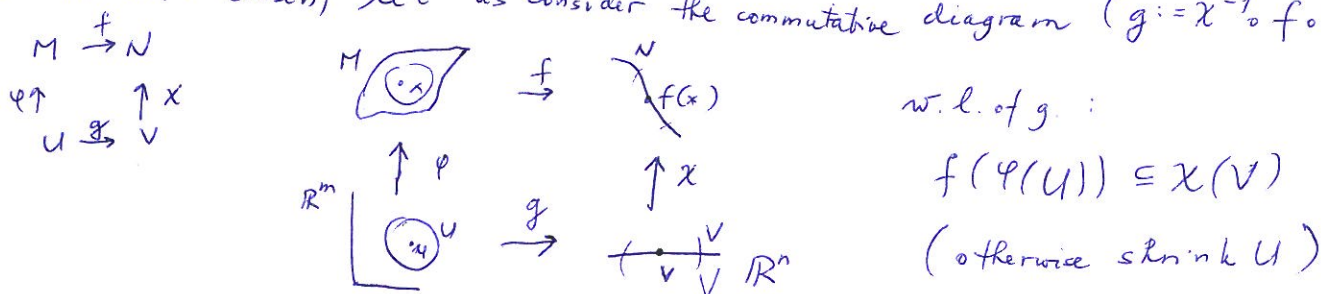 us consider the commutative diagram (g := χ⁻¹∘ f∘
M →f N
φ↑ ↑ χ
U →g V
M x →f N f(x)
↑ φ ↑ χ
ℝᵐ u U →g v V V ℝⁿ
w.l.of g. :
f(φ(U)) ⊆ χ(V)
(otherwise shrink U)